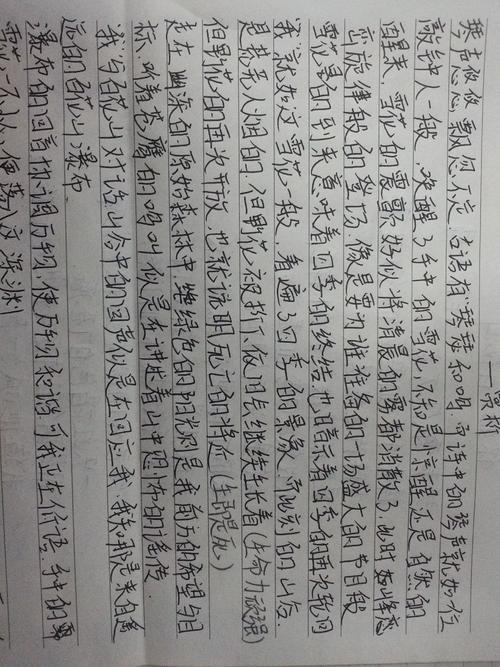 琴声悠悠 飘忽不定 古语有"琴瑟和鸣 而诗中的琴声就如位
敲钟人一般，唤醒了手中的雪花，不知是惊醒还是自然的
醒来，雪花的震颤好似将清晨的雾都消散了 此时如峰峦
齐旋律般的登场 像是要为谁准备的一场盛大的节日般
雪花的到来意味着四季的终结 也暗示着四季的再次轮回
我就如这雪花一般 看遍了四季的景象 而此刻的山谷
是荒无人烟的 但野花被折下 依旧会继续生长着(生命力顽强)
但野花的再次开放 也就说明死亡的将在
走在幽深的原始森林中 绿色的阳光是我前方的希望与目
标 听着苍鹰的鸣叫 似是在讲述着山中恐怖的谣传
我与百花山对话 山谷中的回声似是在回应我 我知那是来自遥
远的百花山瀑布
瀑布的回音协调万物 使万物和谐 可我正在 手中的雪
花一不小心便落入这深渊